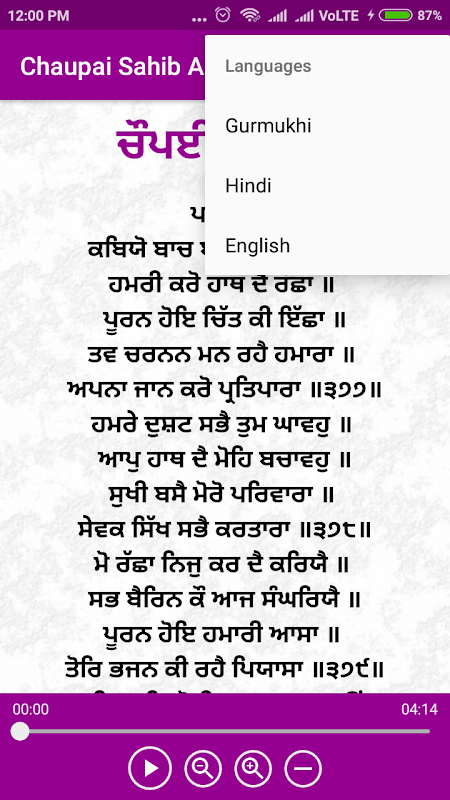 12:00 PM
VoLTE
87%
Chaupai Sahib A
Languages
Gurmukhi
Hindi
English
ਚੌਪਈ
ਕਬਿਯੋ ਬਾਚ
ਹਮਰੀ ਕਰੋ ਹਾਥ ਦੈ ਰੱਛਾ ॥
ਪੂਰਨ ਹੋਇ ਚਿੱਤ ਕੀ ਇੱਛਾ ॥
ਤਵ ਚਰਨਨ ਮਨ ਰਹੈ ਹਮਾਰਾ ॥
ਅਪਨਾ ਜਾਨ ਕਰੋ ਪ੍ਰਤਿਪਾਰਾ ॥੩੭੭॥
ਹਮਰੇ ਦੁਸ਼ਟ ਸਭੈ ਤੁਮ ਘਾਵਹੁ ॥
ਆਪੁ ਹਾਥ ਦੈ ਮੋਹਿ ਬਚਾਵਹੁ ॥
ਸੁਖੀ ਬਸੈ ਮੋਰੋ ਪਰਿਵਾਰਾ ॥
ਸੇਵਕ ਸਿੱਖ ਸਭੈ ਕਰਤਾਰਾ ॥੩੭੮॥
ਮੋ ਰੱਛਾ ਨਿਜੁ ਕਰ ਦੈ ਕਰਿਯੈ ॥
ਸਭ ਬੈਰਿਨ ਕੌ ਆਜ ਸੰਘਰਿਯੈ ॥
ਪੂਰਨ ਹੋਇ ਹਮਾਰੀ ਆਸਾ ॥
ਤੋਰਿ ਭਜਨ ਕੀ ਰਹੈ ਪਿਯਾਸਾ ॥੩੭੯॥
00:00
04:14